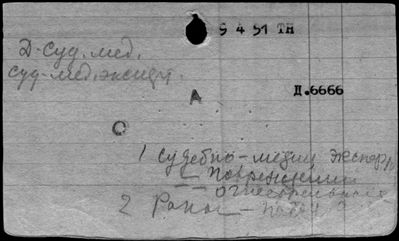 9 4 51 TH
Д-суд. мед.
суд-мед. эксперт.
II.6666
А
О
1 судебно-медиц экспер
повреждении
огнестрельного
2 Рана —